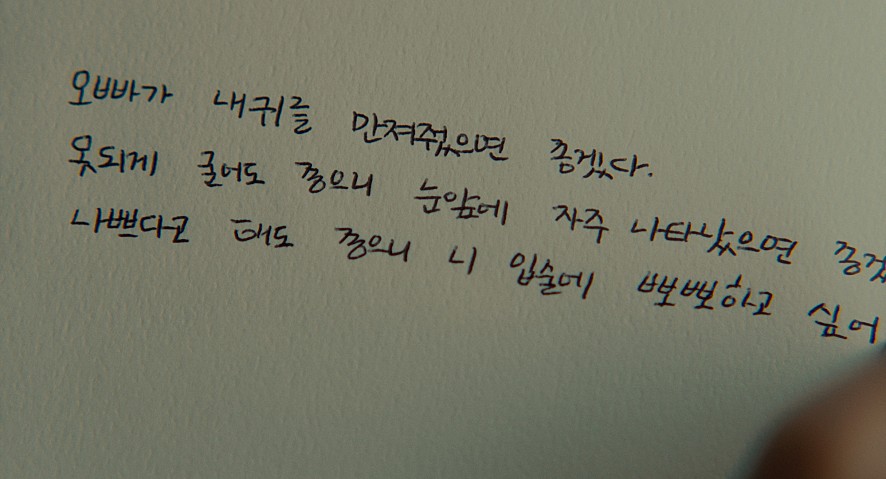 오빠가 내귀를 만져줬으면 좋겠다.
못되게 굴어도 좋으니 눈앞에 자주 나타났으면 좋겠
나쁘다고 해도 좋으니 니 입술에 뽀뽀하고 싶어